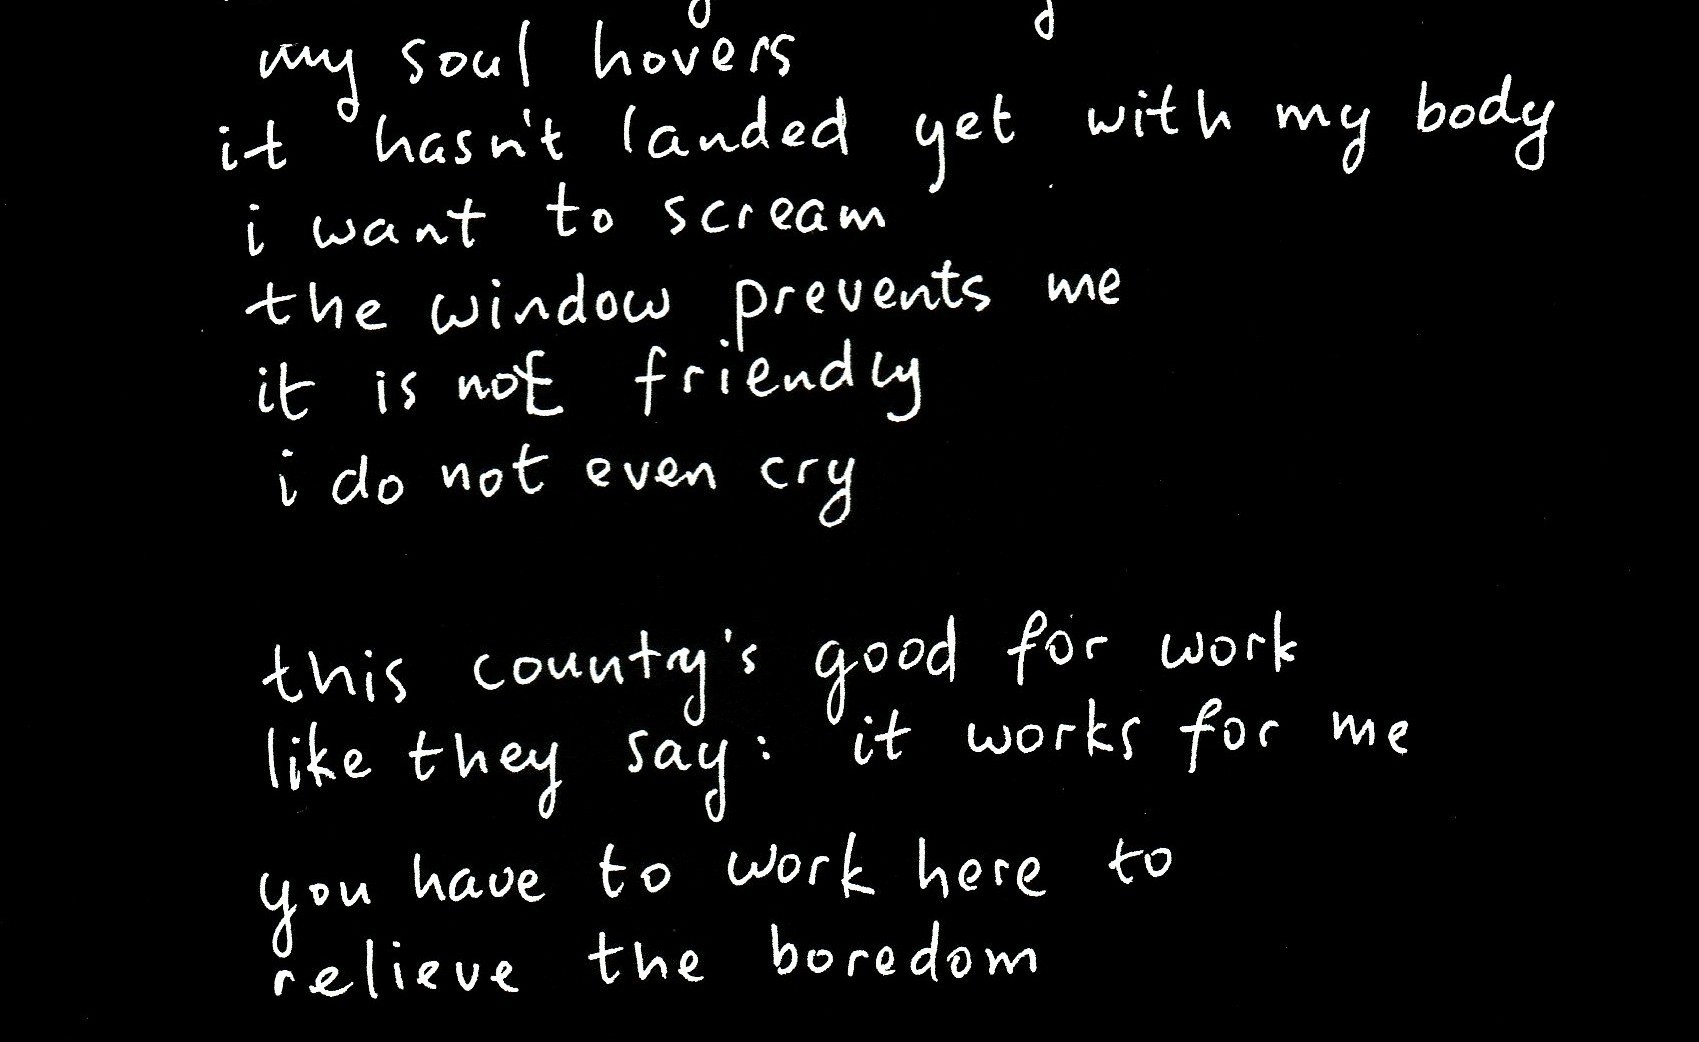 my soul hovers
it hasn't landed yet with my body
i want to scream
the window prevents me
it is not friendly
i do not even cry
this country's good for work
like they say: it works for me
you have to work here to
relieve the boredom